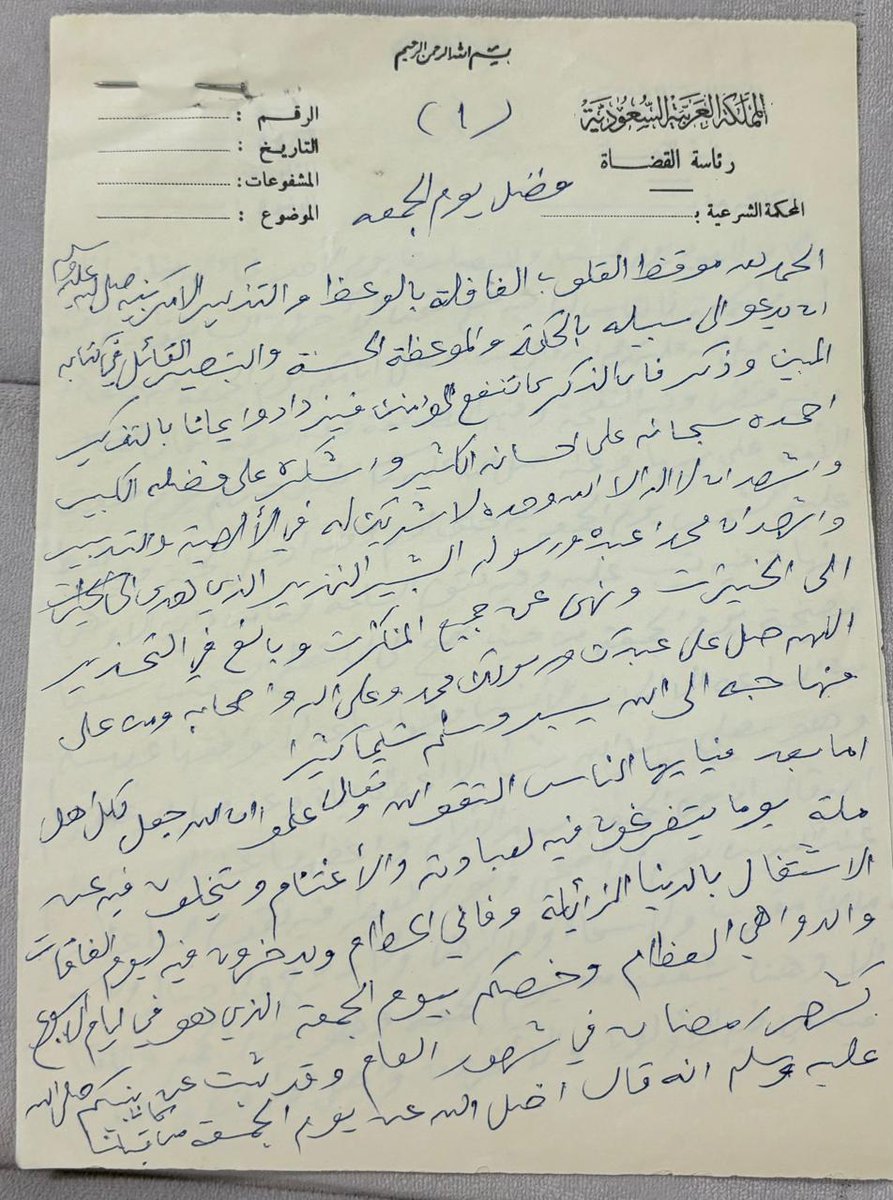 بسم الله الرحمن الرحيم
المملكة العربية السعودية
رئاسة القضاة
المحكمة الشرعية بـ
(١)
الرقم :
التاريخ :
المشفوعات :
الموضوع :
فضل يوم الجمعه
الحمد لله موقظ القلوب الغافلة بالوعظ والتذكير الامر نبيه صلى الله عليه وسلم
ان يدعو الى سبيله بالحكمة والموعظة الحسنة والتبصير القائل في كتابه
المبين وذكر فان الذكرى تنفع المؤمنين فيزدادوا ايمانا بالتذكير
احمده سبحانه على احسانه الكثير واشكره على فضله الكبير
واشهد ان لا اله الا الله وحده لا شريك له في الألهية والتدبير
واشهد ان محمدا عبده ورسوله البشير النذير الذي هدى
الى الخيرات ونهى عن جميع المنكرات وبالغ في التحذير
اللهم صل على عبدك ورسولك محمد وعلى اله واصحابه ومن على
منهاجه الى الله يسير وسلم تسليما كثيرا
اما بعد فيايها الناس اتقو الله تعالى واعلمو ان الله جعل لكل اهل
ملة يوما يتفرغون فيه لعبادته والأغتنام ويتخلون فيه عن
الاشتغال بالدنيا الزائلة وفاني الحطام ويدخرون فيه ليوم الفاقات
والدواهي العظام وخصكم بيوم الجمعة الذي هو في ايام الاسبوع
كشهر رمضان في شهور العام وقد ثبت عن نبيكم صلى الله
عليه وسلم انه قال اضل الله عن يوم الجمعة من كان قبلنا